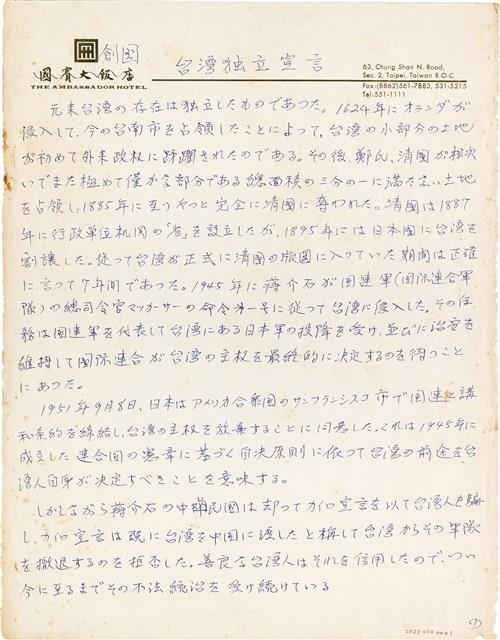 創国
國賓大飯店
THE AMBASSADOR HOTEL
台湾独立宣言
63, Chung Shan N. Road,
Sec. 2, Taipei, Taiwan R.O.C.
Fax:(8862)561-7883, 531-5215
Tel:551-1111
元来台湾の存在は独立したものであつた。1624年にオランダが
侵入して、今の台南市を占領したことによって、台湾の小部分の土地
が初めて外来政权に蹂躙されたのである。その後、鄭氏、清國が相次
いでまた極めて僅かな部分である總面積の三分の一に満たない土地
を占領し、1885年に至りやつと完全に清國に奪われた。清國は1887
年に行政単位机関の「省」を設立したが、1895年には日本國に台湾を
割讓した。従って台湾が正式に清國の版図に入っていた期間は正確
に言って7年間であった。1945年に蒋介石が国連軍(国际連合軍
隊)の總司令官マッカーサーの命令第一号に従って台湾に侵入した。その任
務は国連軍を代表して台湾にある日本軍の投降を受け、並びに治安を
維持して国际連合が台湾の主权を最終的に決定するのを待つこと
にあった。
1951年9月8日、日本はアメリカ合衆国のサンフランシスコ市で国連と講
和条約を締結し、台湾の主权を放棄することに同意した。これは1945年に
成立した連合国の憲章に基づく自決原則に依って台湾の前途を台
湾人自身が決定すべきことを意味する。
しかしながら蒋介石の中華民国は却ってカイロ宣言を以て台湾人を騙
し、カイロ宣言は既に台湾を中国に渡したと称して台湾からその軍隊
を撤退するのを拒否した。善良な台湾人はそれを信用したので、つい
今に至るまでその不法統治を受け続けている
2022 010 0001